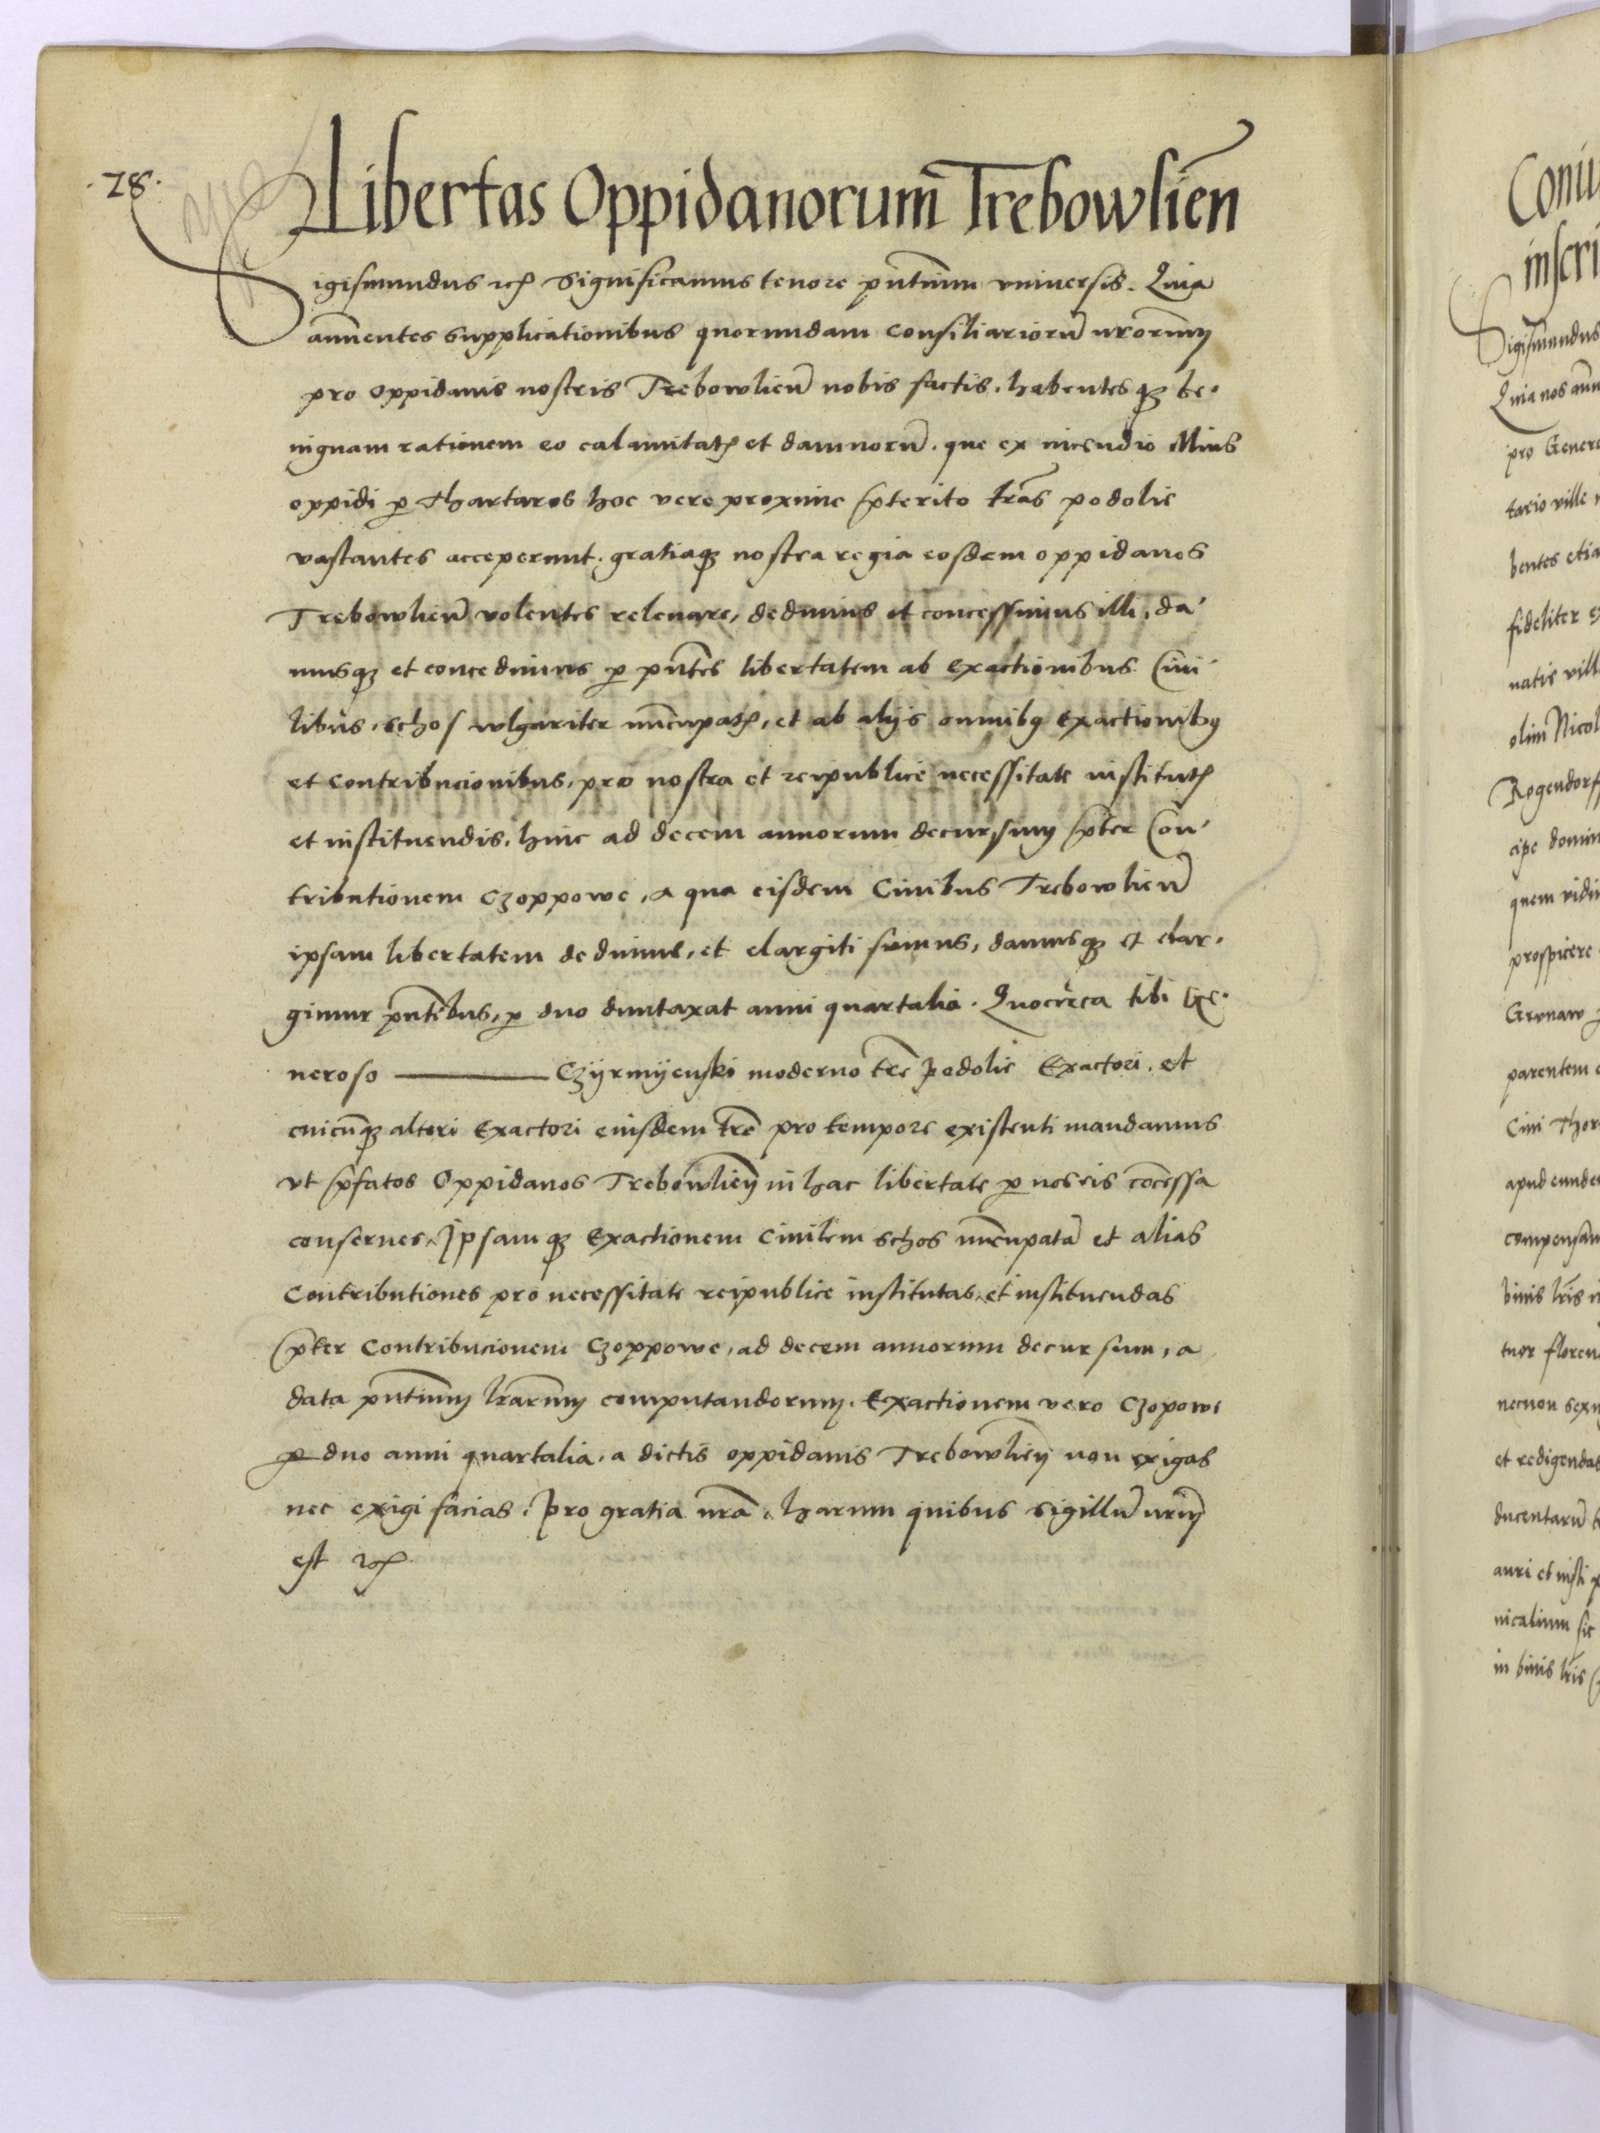 .78.
Libertas Oppidanorum Trebowlien̄
Sigismundus etc̃ Significamus tenore pn̄tium vniversis. Quia
annuentes supplicationibus quorundam consiliariorū nr̄orum
pro oppidanis nostris Trebowlien̄ nobis factis, habentesqȝ be-
nignam rationem eo calamitatꝭ et damnorū, que ex incendio illius
oppidi ꝑ Thartaros hoc vere proxime p̄terito tr̄as podolie
vastantes acceperunt. gratiaqȝ nostra regia eosdem oppidanos
Trebowlien̄ volentes relevare, dedimus et concessimus illi, da-
musqȝ et concedimus ꝑ pn̄tes libertatem ab exactionibus Civi-
libus, schos wlgariter nūcupatꝭ, et ab alijs omnibꝰ exactionibꝰ
et contribucionibus, pro nostra et reipublice necessitate institutꝭ
et instituendis, hinc ad decem annorum decursum p̄ter Con-
tributionem Czoppowe, a qua eisdem Civibus Trebowlien̄
ipsam libertatem dedimus, et elargiti sumus, damusqȝ et elar-
gimur pn̄tibus, ꝑ duo duntaxat anni quartalia. Quocirca tibi Ge-
neroso ——— Czÿrmÿenski moderno tr̄e Podolie Exactori, et
cuicūqȝ alteri Exactori eiusdem tr̄e pro tempore existenti mandamus
vt p̄fatos Oppidanos Trebowlien̄ in hac libertate ꝑ nos eis cōcessa
conserves, Ipsamqȝ Exactionem Civilem schos nūcupatā et alias
Contributiones pro necessitate reipublice institutas, et instituendas
p̄ter Contribucionem Czoppowe, ad decem annorum decursum, a
data pn̄tium lr̄arum computandorum. Exactionem vero Czopowe
ꝑ duo anni quartalia, a dictis oppidanis Trebowlien̄ non exigas
nec exigi facias, pro gratia nr̄a, harum quibus sigillū nr̄um
est etc̃
Coniu
inscri
Sigismundus
Quia nos ann
pro Gener
tario ville
bentes etia
fideliter ex
natis vill
olim Nicol
Rogendorf
cipe domin
quem vidi
prospicere
Grunaw
parentem
Civi Thor
apud eunde
compensan
binis lr̄is
tuor floren
necnon sex
et redigendas
ducentarū
auri et iusti
nicalium sic
in binis lr̄is